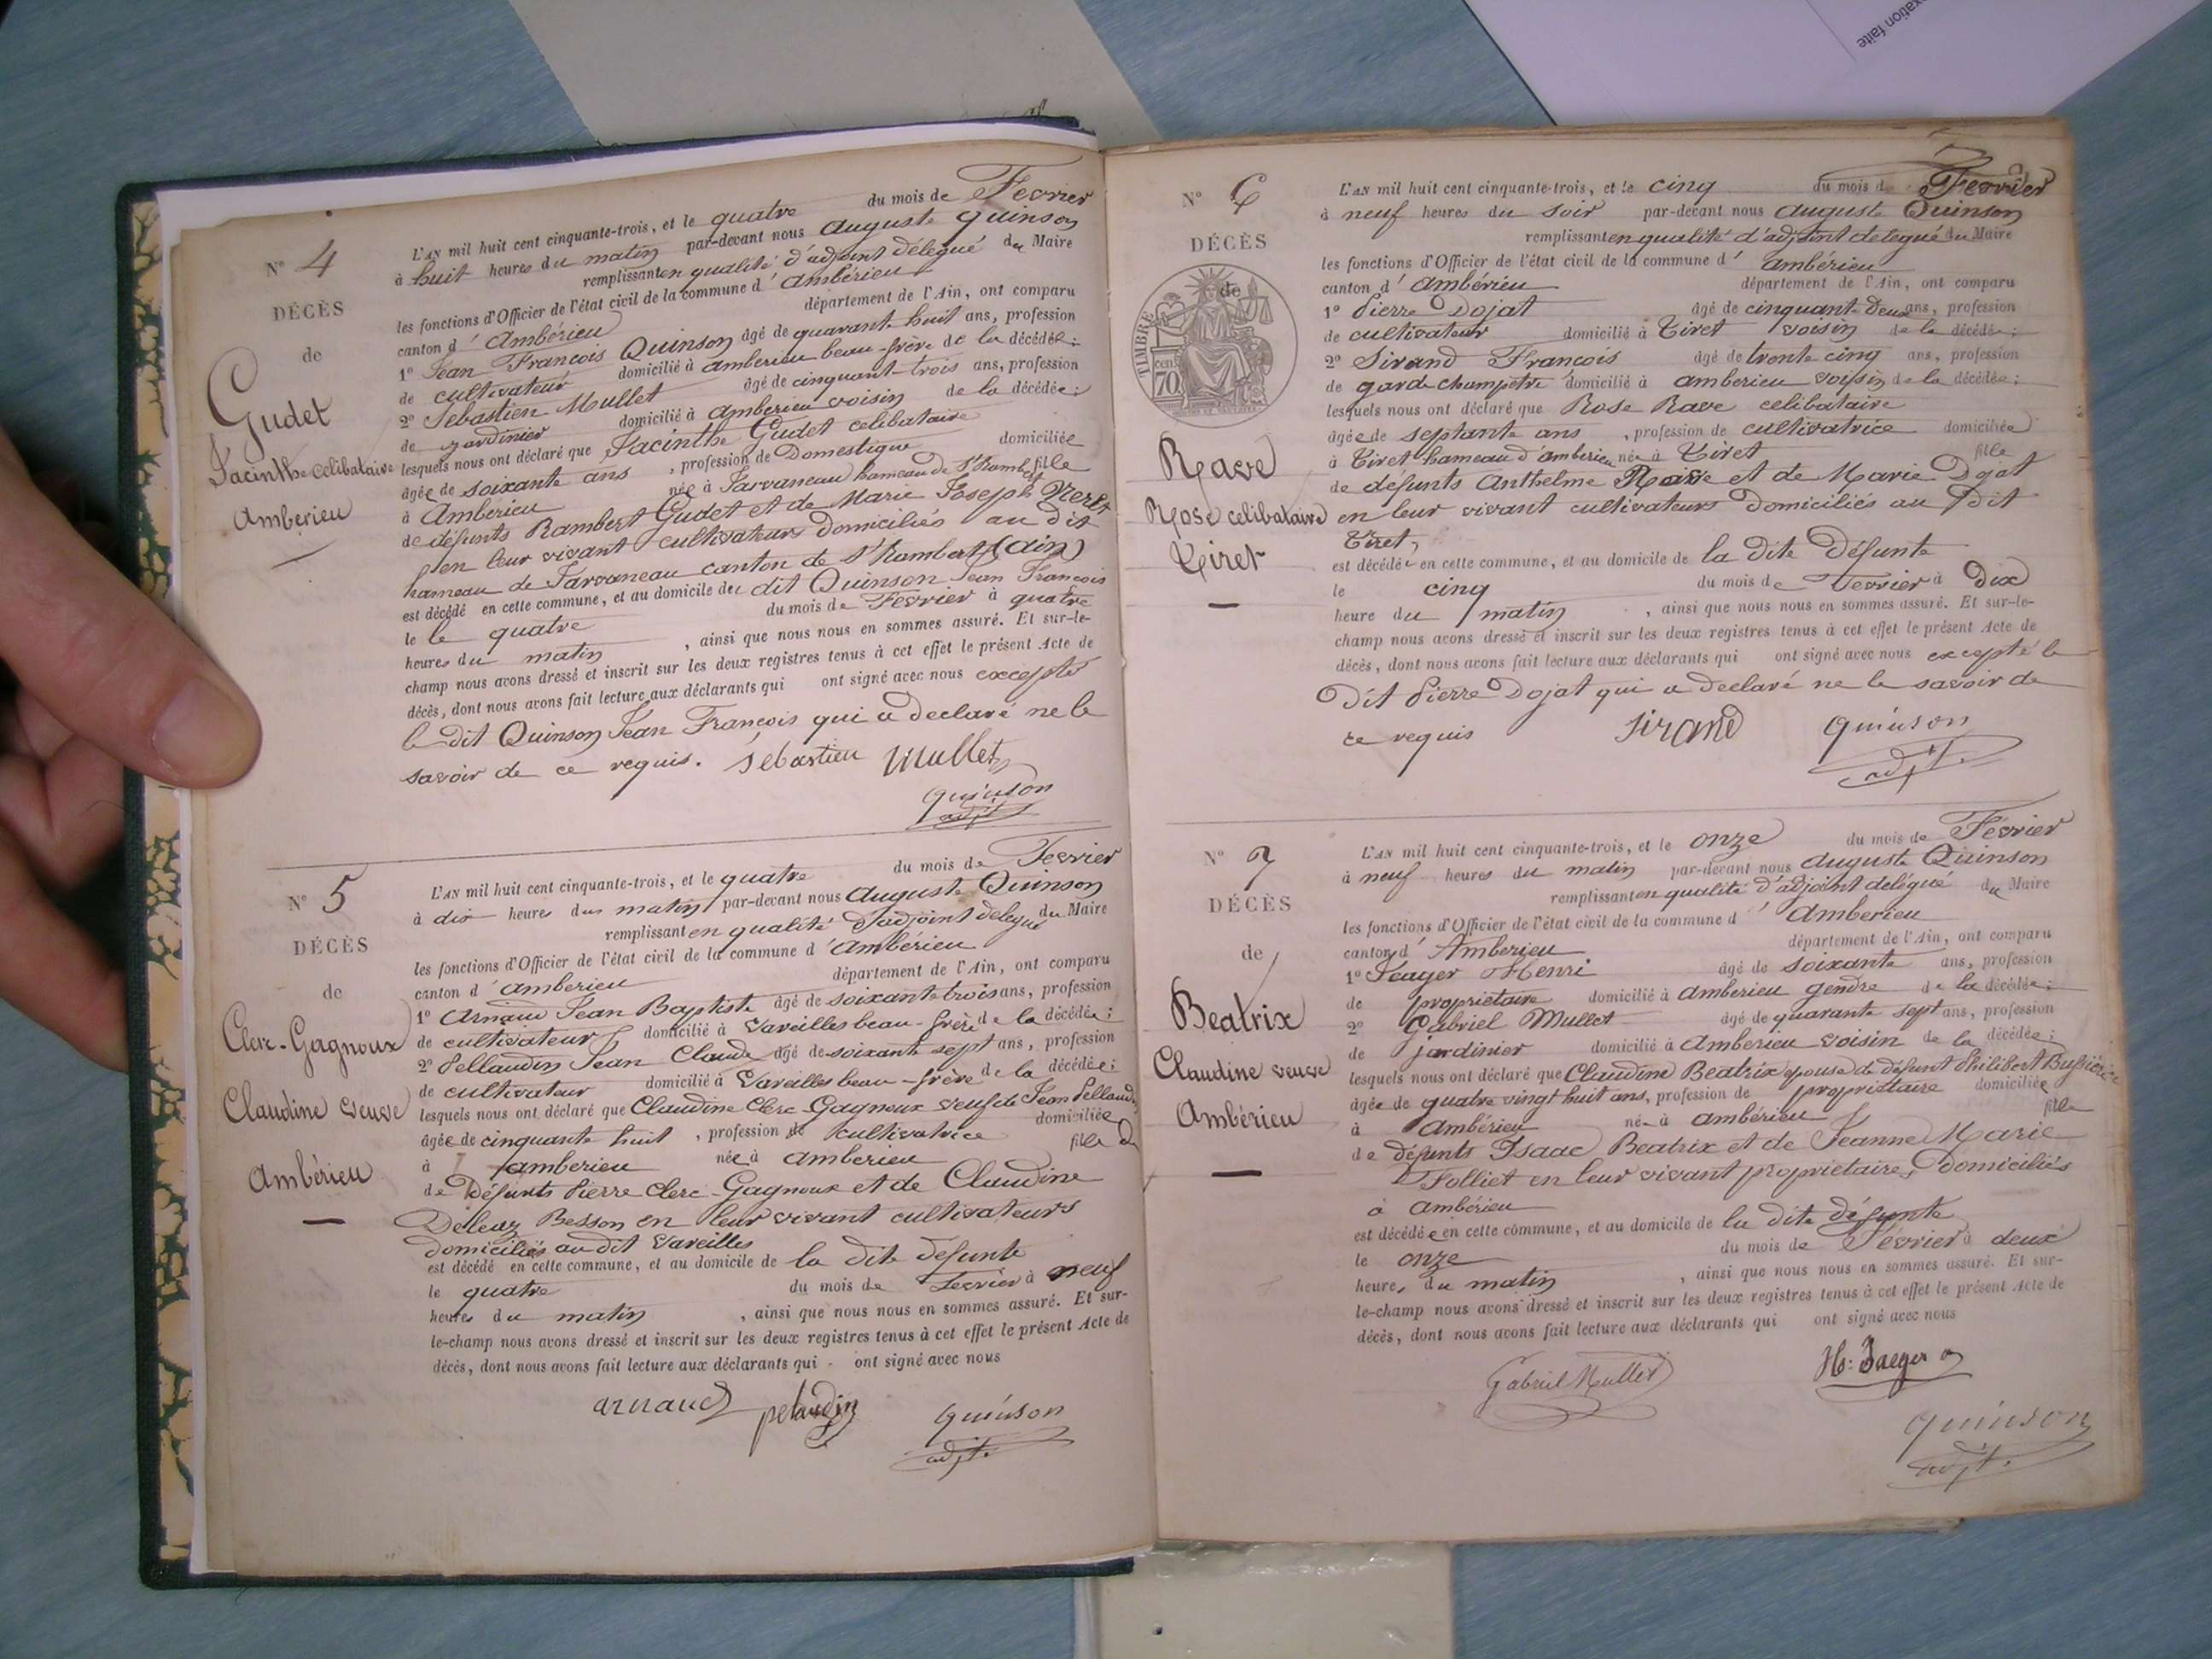 xation faite
N° 4
DÉCÈS
de
Gudet
Jacinthe celibataire
Amberieu
L'AN mil huit cent cinquante-trois, et le quatre du mois de Fevrier
à huit heures du matin par-devant nous auguste quinson
remplissant en qualité d'adjoint délégué du Maire
les fonctions d'Officier de l'état civil de la commune d'ambérieu
canton d'Ambérieu département de l'Ain, ont comparu
1° Jean François Quinson âgé de quarante huit ans, profession
de cultivateur domicilié à amberieu beau-frère de la décédée;
2° Sebastien Mullet âgé de cinquante trois ans, profession
de jardinier domicilié à Amberieu voisin de la décédée;
lesquels nous ont déclaré que Jacinthe Gudet celibataire
âgée de soixante ans, profession de Domestique domiciliée
à Amberieu née à Javaneau hameau de St Rambert fille
de défunts Rambert Gudet et de Marie Joseph
en leur vivant cultivateurs domiciliés au dit
hameau de canton de St Rambert (ain)
est décédé en cette commune, et au domicile du dit Quinson Jean François
le le quatre du mois de Fevrier à quatre
heures du matin, ainsi que nous nous en sommes assuré. Et sur-le-
champ nous avons dressé et inscrit sur les deux registres tenus à cet effet le présent Acte de
décès, dont nous avons fait lecture aux déclarants qui ont signé avec nous excepté
le dit Quinson Jean François qui a declaré ne le
savoir de ce requis. sebastien Mullet
quinson
adjt
N° 5
DÉCÈS
de
Clerc-Gagnoux
Claudine veuve
Ambérieu
L'AN mil huit cent cinquante-trois, et le quatre du mois de Fevrier
à dix heures du matin par-devant nous Auguste Quinson
remplissant en qualité d'adjoint delegué du Maire
les fonctions d'Officier de l'état civil de la commune d'Ambérieu
canton d'amberieu département de l'Ain, ont comparu
1° Arnaud Jean Baptiste âgé de soixante trois ans, profession
de cultivateur domicilié à Vareilles beau-frère de la décédée;
2° Pellaudin Jean Claude âgé de soixante sept ans, profession
de cultivateur domicilié à Vareilles beau-frère de la décédée;
lesquels nous ont déclaré que Claudine Clerc Gagnoux veuf de Jean Pellaudin
âgée de cinquante huit, profession de cultivatrice domiciliée
à amberieu née à amberieu fille de
de Défunts Pierre Clerc-Gagnoux et de Claudine
Besson en leur vivant cultivateurs
domiciliés au dit Vareilles
est décédé en cette commune, et au domicile de la dite défunte
le quatre du mois de Fevrier à neuf
heures du matin, ainsi que nous nous en sommes assuré. Et sur-
le-champ nous avons dressé et inscrit sur les deux registres tenus à cet effet le présent Acte de
décès, dont nous avons fait lecture aux déclarants qui ont signé avec nous
arnaud pelaudin quinson
adjt.
N° 6
DÉCÈS
de
TIMBRE
cen. 70
Rave
Rose celibataire
Tiret
L'AN mil huit cent cinquante-trois, et le cinq du mois d Fevrier
à neuf heures du soir par-devant nous auguste Quinson
remplissant en qualité d'adjoint delegué du Maire
les fonctions d'Officier de l'état civil de la commune d'ambérieu
canton d'Ambérieu département de l'Ain, ont comparu
1° Pierre Dojat âgé de cinquant Deux ans, profession
de cultivateur domicilié à Tiret voisin de la décédée;
2° Sirand François âgé de trente cinq ans, profession
de garde champetre domicilié à amberieu voisin de la décédée;
lesquels nous ont déclaré que Rose Rave celibataire
âgée de septante ans, profession de cultivatrice domiciliée
à Tiret hameau d'amberieu née à Tiret fille
de défunts Anthelme Rave et de Marie Dojat
en leur vivant cultivateurs domiciliés au dit
Tiret,
est décédée en cette commune, et au domicile de la dite défunte
le cinq du mois de Fevrier à Dix
heure du matin, ainsi que nous nous en sommes assuré. Et sur-le-
champ nous avons dressé et inscrit sur les deux registres tenus à cet effet le présent Acte de
décès, dont nous avons fait lecture aux déclarants qui ont signé avec nous excepté le
Dit Pierre Dojat qui a declaré ne le savoir de
ce requis Sirand quinson
adjt.
N° 7
DÉCÈS
de
Beatrix
Claudine veuve
Ambérieu
L'AN mil huit cent cinquante-trois, et le onze du mois de Février
à neuf heures du matin par-devant nous Auguste Quinson
remplissant en qualité d'adjoint delégué du Maire
les fonctions d'Officier de l'état civil de la commune d'Amberieu
canton d'Amberieu département de l'Ain, ont comparu
1° Jeager Henri âgé de soixante ans, profession
de propriétaire domicilié à Amberieu gendre de la décédée;
2° Gabriel Mullet âgé de quarante sept ans, profession
de jardinier domicilié à Amberieu voisin de la décédée;
lesquels nous ont déclaré que Claudine Beatrix epouse de défunt Philibert
âgée de quatre vingt huit ans, profession de propriétaire domiciliée
à Ambérieu née à ambérieu fille
de défunts Isaac Beatrix et de Jeanne Marie
Folliet en leur vivant proprietaires domiciliés
à ambérieu
est décédée en cette commune, et au domicile de la dite défunte
le onze du mois de Février à deux
heures du matin, ainsi que nous nous en sommes assuré. Et sur-
le-champ nous avons dressé et inscrit sur les deux registres tenus à cet effet le présent Acte de
décès, dont nous avons fait lecture aux déclarants qui ont signé avec nous
Gabriel Mullet Hs: Jaeger
quinson
adjt.